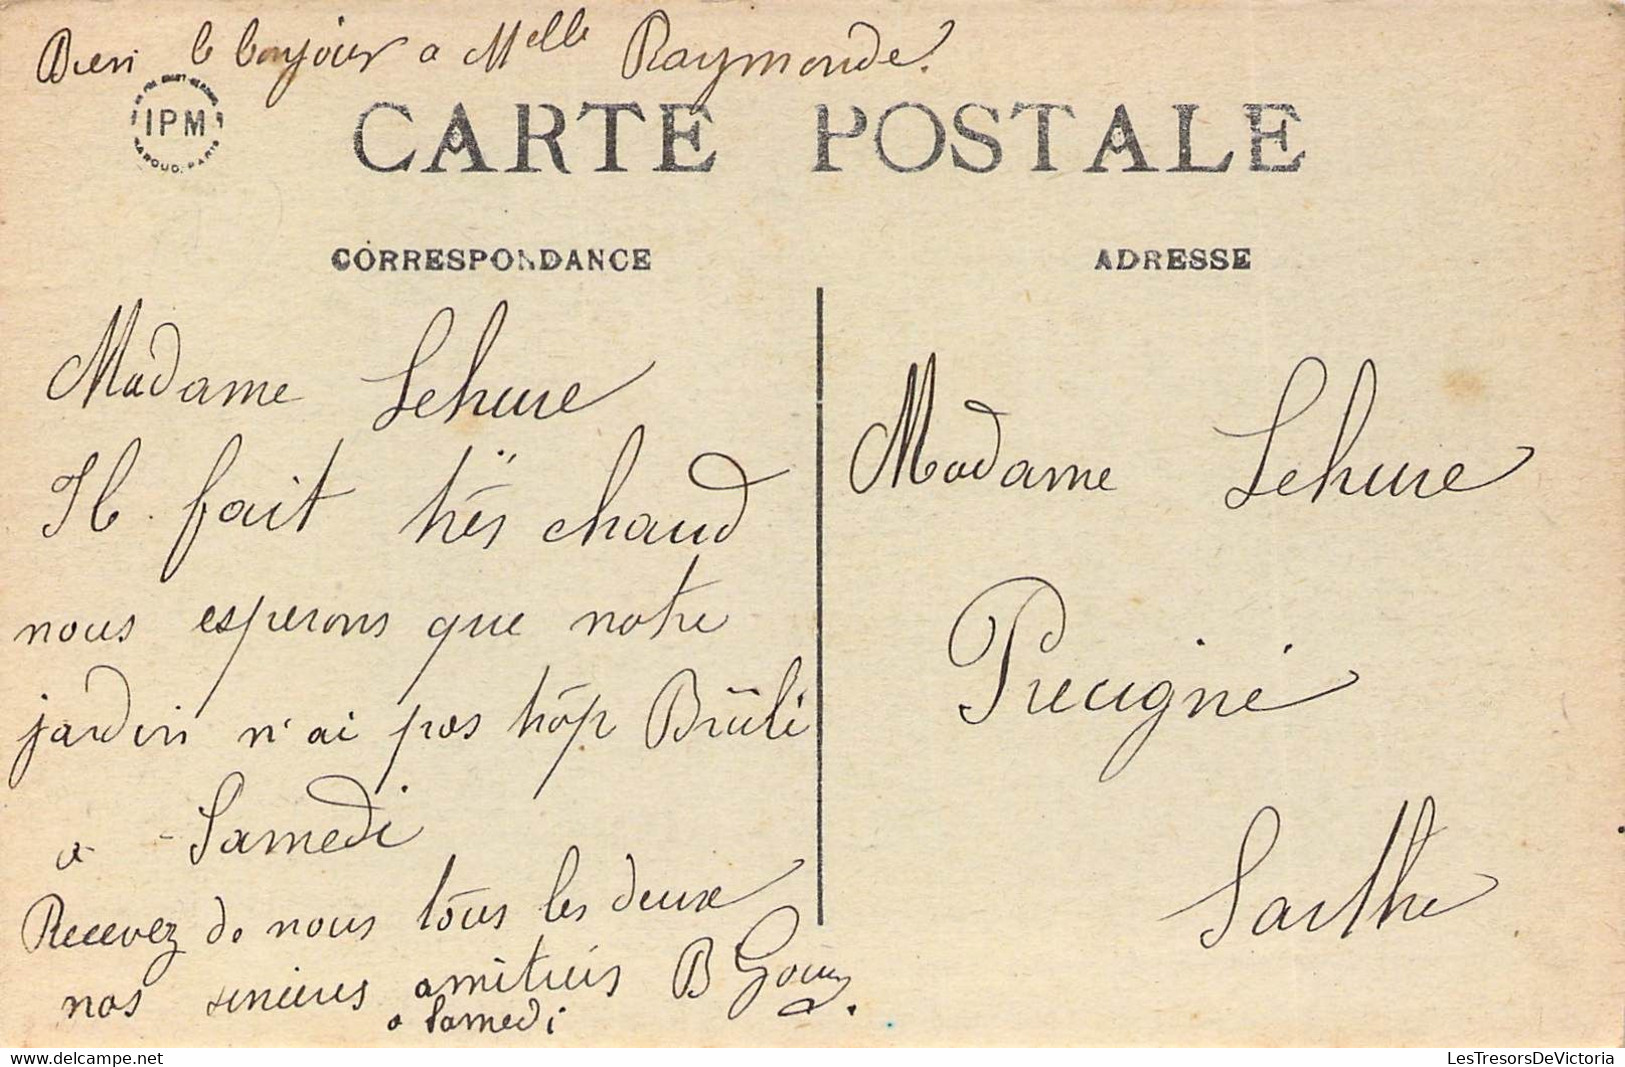 Bien le bonjour a Melle Raymonde.
IPM
PARIS
CARTE POSTALE
CORRESPONDANCE
ADRESSE
Madame Lehure
Il fait très chaud
nous esperons que notre
jardin n'ai pas trop Brûlé
a Samedi
Recevez de nous tous les deux
nos sincères amitiés B
a Samedi
Madame Lehure
Precigné
Sarthe
LesTresorsDeVictoria
fr.delcampe.net